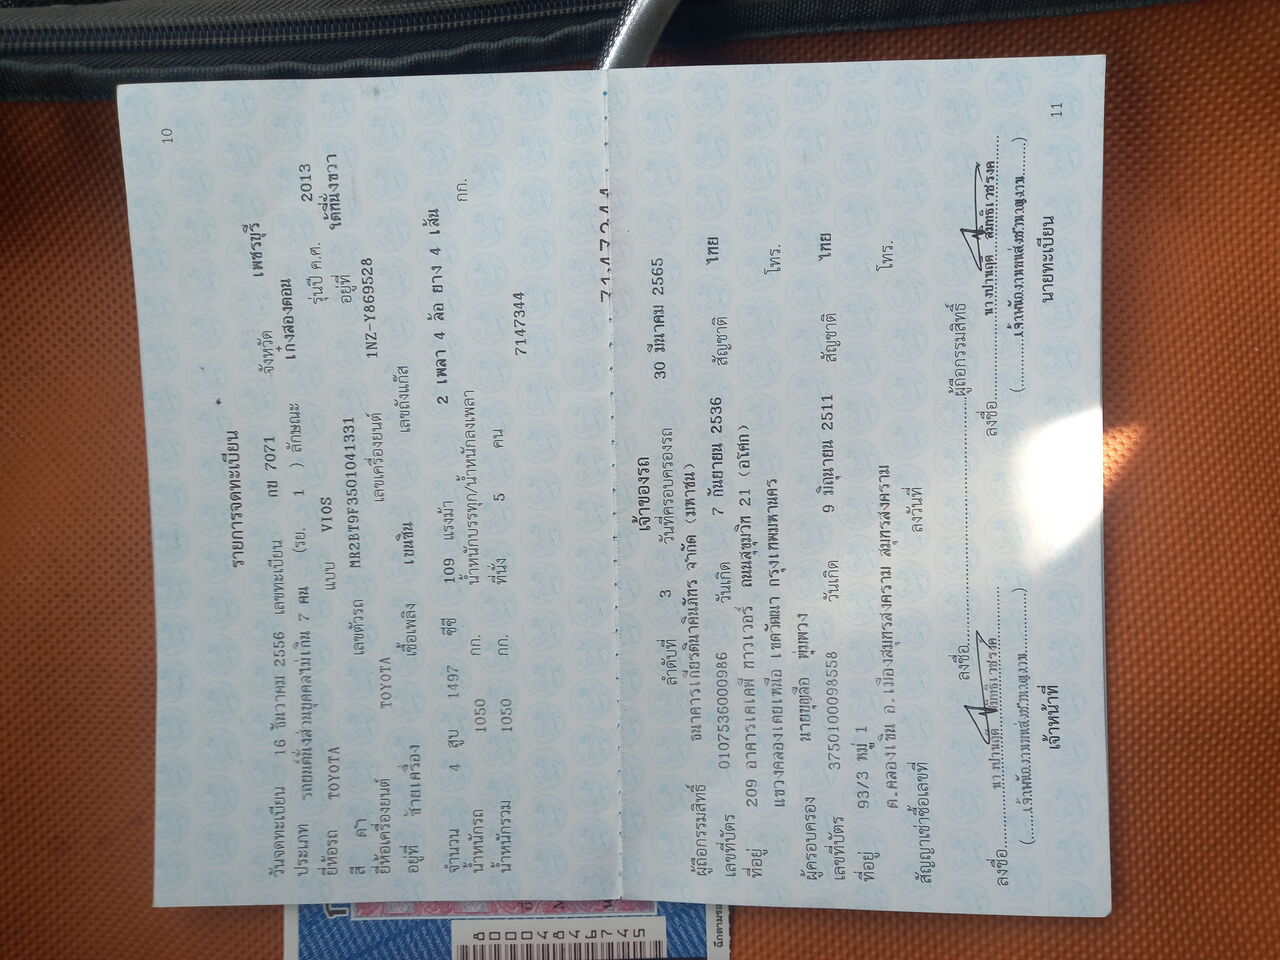 10
รายการจดทะเบียน
วันจดทะเบียน 16 ธันวาคม 2556 เลขทะเบียน กข 7071 จังหวัด เพชรบุรี
ประเภท รถยนต์นั่งส่วนบุคคลไม่เกิน 7 คน (รย. 1 ) ลักษณะ เก๋งสองตอน
ยี่ห้อรถ TOYOTA แบบ VIOS รุ่นปี ค.ศ. 2013
สี ดำ เลขตัวรถ MR2BT9F3501041331 อยู่ที่ ใต้ที่นั่งขวา
ยี่ห้อเครื่องยนต์ TOYOTA เลขเครื่องยนต์ 1NZ-Y869528
อยู่ที่ ซ้ายเครื่อง เชื้อเพลิง เบนซิน เลขถังแก๊ส
จำนวน 4 สูบ 1497 ซีซี 109 แรงม้า 2 เพลา 4 ล้อ ยาง 4 เส้น
น้ำหนักรถ 1050 กก. น้ำหนักบรรทุก/น้ำหนักลงเพลา กก.
น้ำหนักรวม 1050 กก. ที่นั่ง 5 คน
7147344
7147344
เจ้าของรถ
ลำดับที่ 3 วันที่ครอบครองรถ 30 มีนาคม 2565
ผู้ถือกรรมสิทธิ์ ธนาคารเกียรตินาคินภัทร จำกัด (มหาชน)
เลขที่บัตร 0107536000986 วันเกิด 7 กันยายน 2536 สัญชาติ ไทย
ที่อยู่ 209 อาคารเคเคพี ทาวเวอร์ ถนนสุขุมวิท 21 (อโศก)
แขวงคลองเตยเหนือ เขตวัฒนา กรุงเทพมหานคร โทร.
ผู้ครอบครอง นายบุญลือ พุ่มพวง
เลขที่บัตร 3750100098558 วันเกิด 9 มิถุนายน 2511 สัญชาติ ไทย
ที่อยู่ 93/3 หมู่ 1
ต.คลองเขิน อ.เมืองสมุทรสงคราม สมุทรสงคราม โทร.
สัญญาเช่าซื้อเลขที่ ลงวันที่
ลงชื่อ ผู้ถือกรรมสิทธิ์
ลงชื่อ ลงชื่อ
(เจ้าพนักงานขนส่งชำนาญงาน) (เจ้าพนักงานขนส่งชำนาญงาน)
เจ้าหน้าที่ นายทะเบียน
11